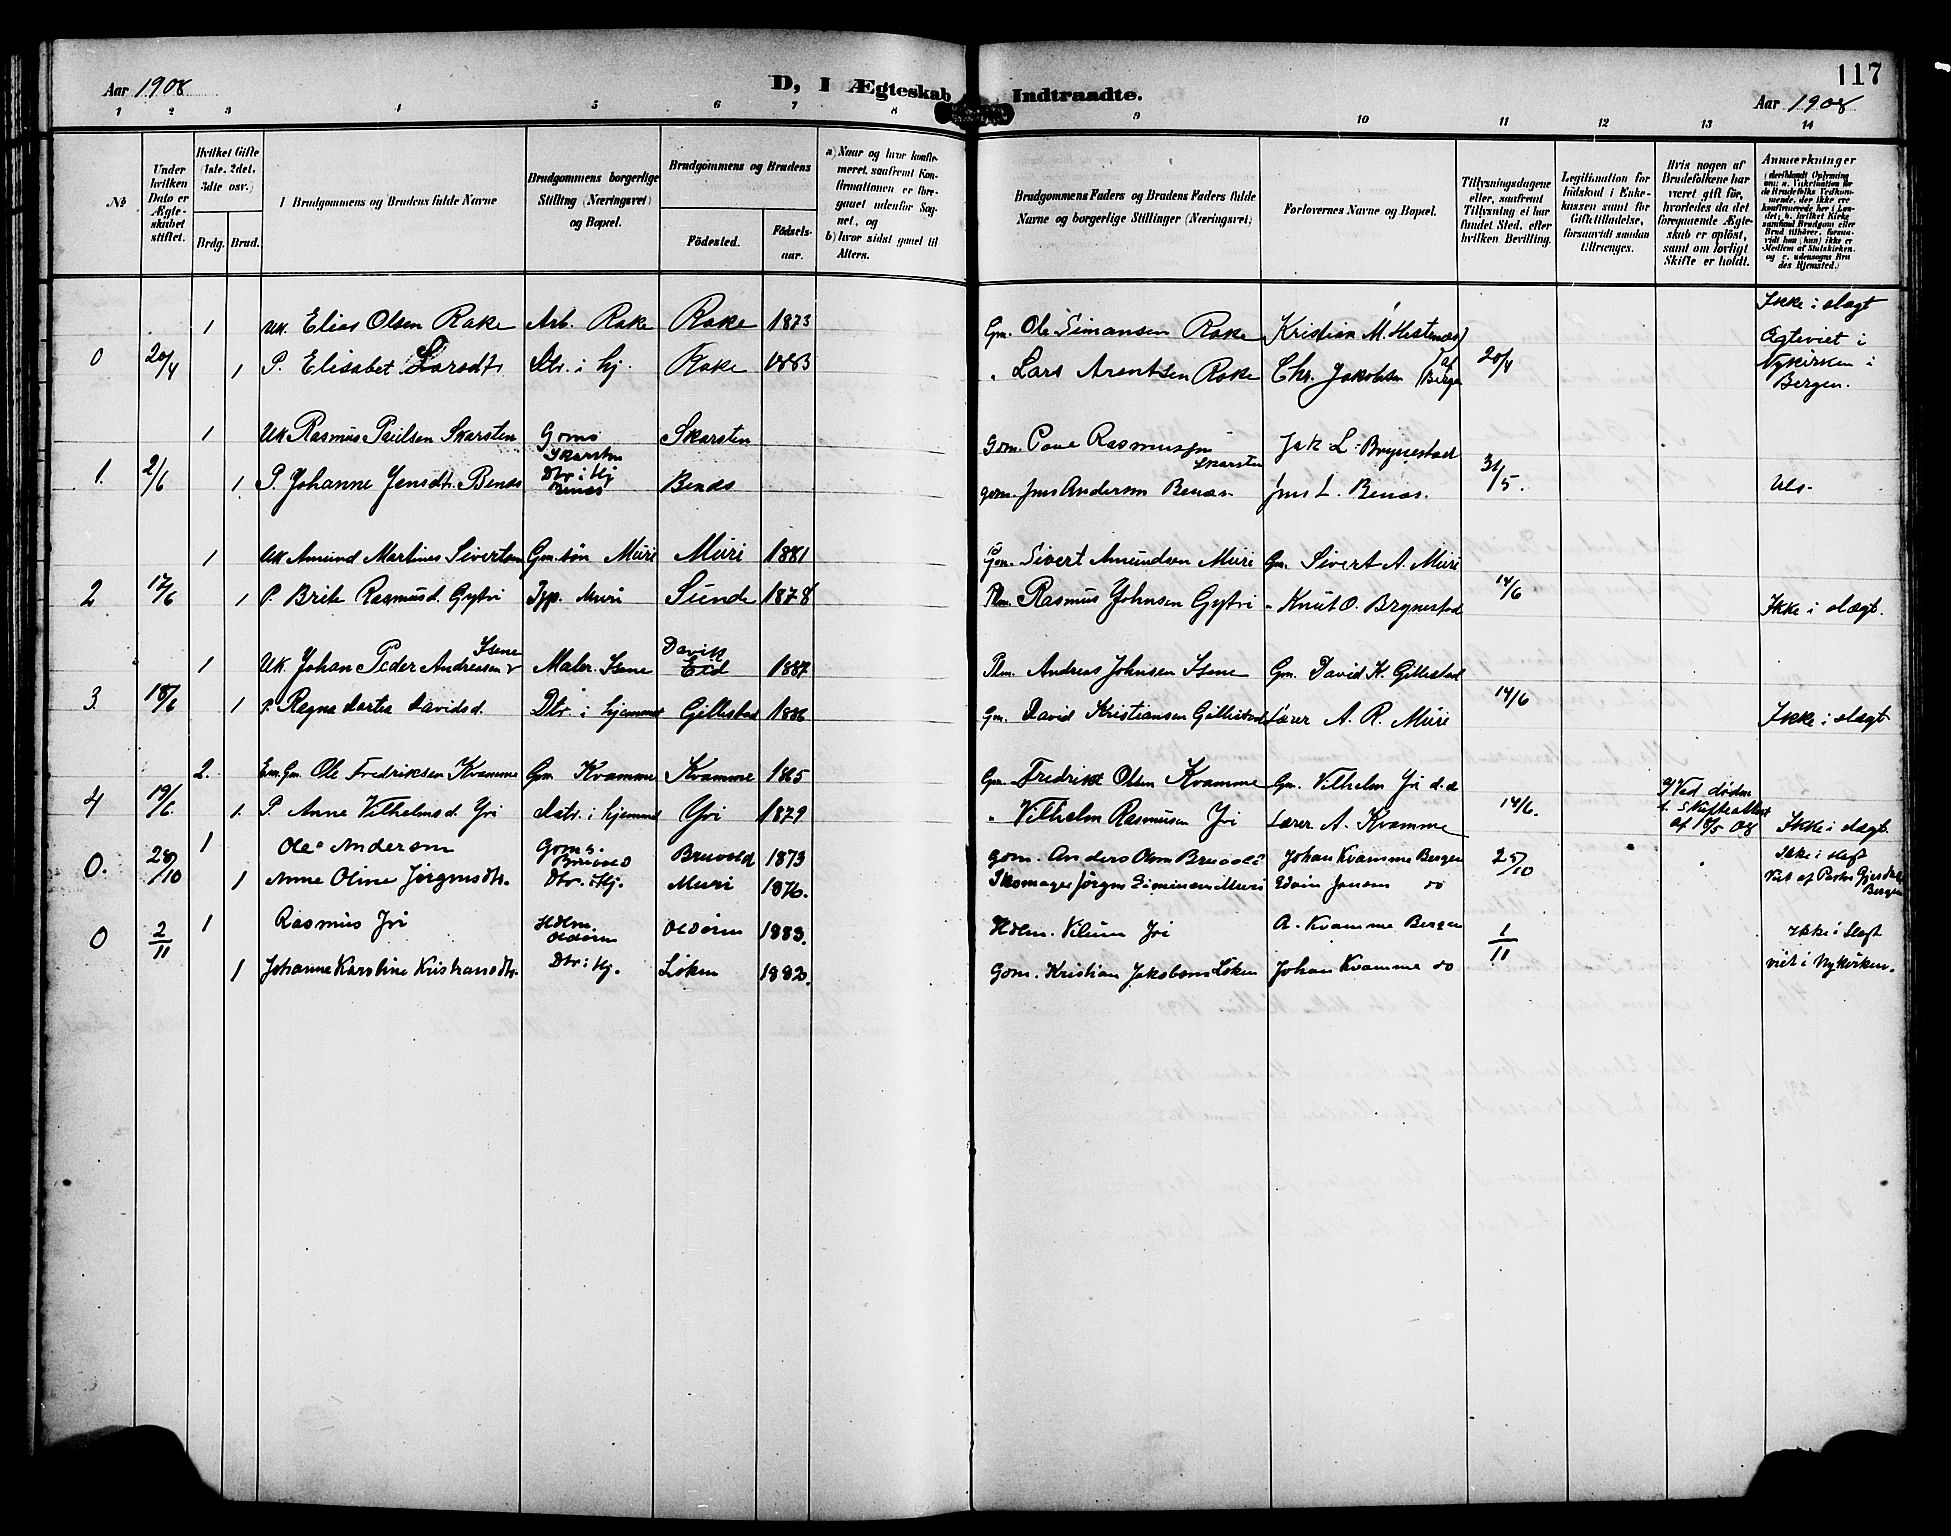 117
Aar 1908
D, I Ægteskab Indtraadte.
Aar 1908
1 2 3 4 5 6 7 8 9 10 11 12 13 14
No
Under hvilken Dato er Ægteskabet stiftet.
Hvilket Gifte (1ste, 2det, 3die osv.)
Brdg. Brud.
I Brudgommens og Brudens fulde Navne
Brudgommens borgerlige Stilling (Næringsvei) og Bopæl.
Brudgommens og Brudens
Födested. Födselsaar.
a) Naar og hvor konfirmeret, saafremt Konfirmationen er foregaaet udenfor Sognet, og
b) hvor sidst gaaet til Alters.
Brudgommens Faders og Brudens Faders fulde Navne og borgerlige Stillinger (Næringsvei)
Forlovernes Navne og Bopæl.
Tillysningsdagene eller, saafremt Tillysning ei har fundet Sted, efter hvilken Bevilling.
Legitimation for Indskud i Enkekassen samt for Gifttilladelse, forsaavidt saadan tiltrænges.
Hvis nogen af Brudefolkene har været gift för, hvorledes da det foregaaende Ægteskab er oplöst, samt om lovligt Skifte er holdt.
Anmærkninger
1 Uk. Elias Olsen Rake Arb. Rake Rake 1873 Gm. Ole Simansen Rake Kristian M. Hestenæs Ikke i slægt
0 20/4 1 P. Elisabet Larsdtr Dtr. i hj. Rake 1883 " Lars Arentsen Rake Chr. Jakobsen af Bergen 20/4 Ægteviet i Nykirken i Bergen.
1 Uk Rasmus Paulsen Skarsten Goms Skarsten Skarsten Gom. Paul Rasmussen Skarsten Jak L. Brynestad
1. 2/6 1 P. Johanne Jensdtr. Benæs Dtr. i Hj Benæs Benæs gom. Jens Andersen Benæs Jens L. Benæs. 31/5. Uls-
1 Uk Amund Martinus Sivertsen Gm. søn Muri Muri 1881 Gm. Sivert Amundsen Muri Gm. Sivert A. Muri
2 17/6 1 P. Brite Rasmusd. Gytri Tjp. Muri Sunde 1878 Plm. Rasmus Johnsen Gytri " Knut O. Brynestad 14/6 Ikke i slægt.
1 Uk. Johan Peder Andreasen Isene Maler. Isene Davik Eid 1887 Plm. Andreas Johnsen Isene Gm. David K. Gillestad
3. 18/6 1 P. Ragna Marta Davidsd. Dtr. i hjemmet Gillestad 1886 Gm. David Kristiansen Gillestad Lærer A. R. Muri 14/6 Ikke i slægt
2. Em. Gm. Ole Fredriksen Kvamme Gm. Kvamme Kvamme 1865 Gm. Fredrik Olsen Kvamme Gm. Vilhelm Yri d.æ
4 19/6. 1. P. Anne Vilhelmsd. Yri datr. i hjemmet Yri 1879 " Vilhelm Rasmusen Yri Lærer A. Kvamme 14/6. Ved døden Skifteattest af 18/5 08 Ikke i slægt
1 Ole Andersen Goms. Bruvold Bruvold 1873 gom. Anders Olsen Bruvold Johan Kvamme Bergen Ikke i slegt
0. 28/10 1 Anne Oline Jørgensdtr. Dtr. i Hj. Muri 1876. Skomager Jørgen Simensen Muri Edvin Jensen do 25/10 Viet af Pastor Gjesdahl Bergen
1 Rasmus Yri Hdlm. Oldøren Oldøren 1883. Hdlm. Vilum Yri A. Kvamme Bergen Ikke i Slegt
0 2/11 1 Johanne Karoline Kristiansdtr. Dtr. i Hj. Løken 1882. gom. Kristian Jakobsen Løken Johan Kvamme do 1/11 viet i Nykirken.